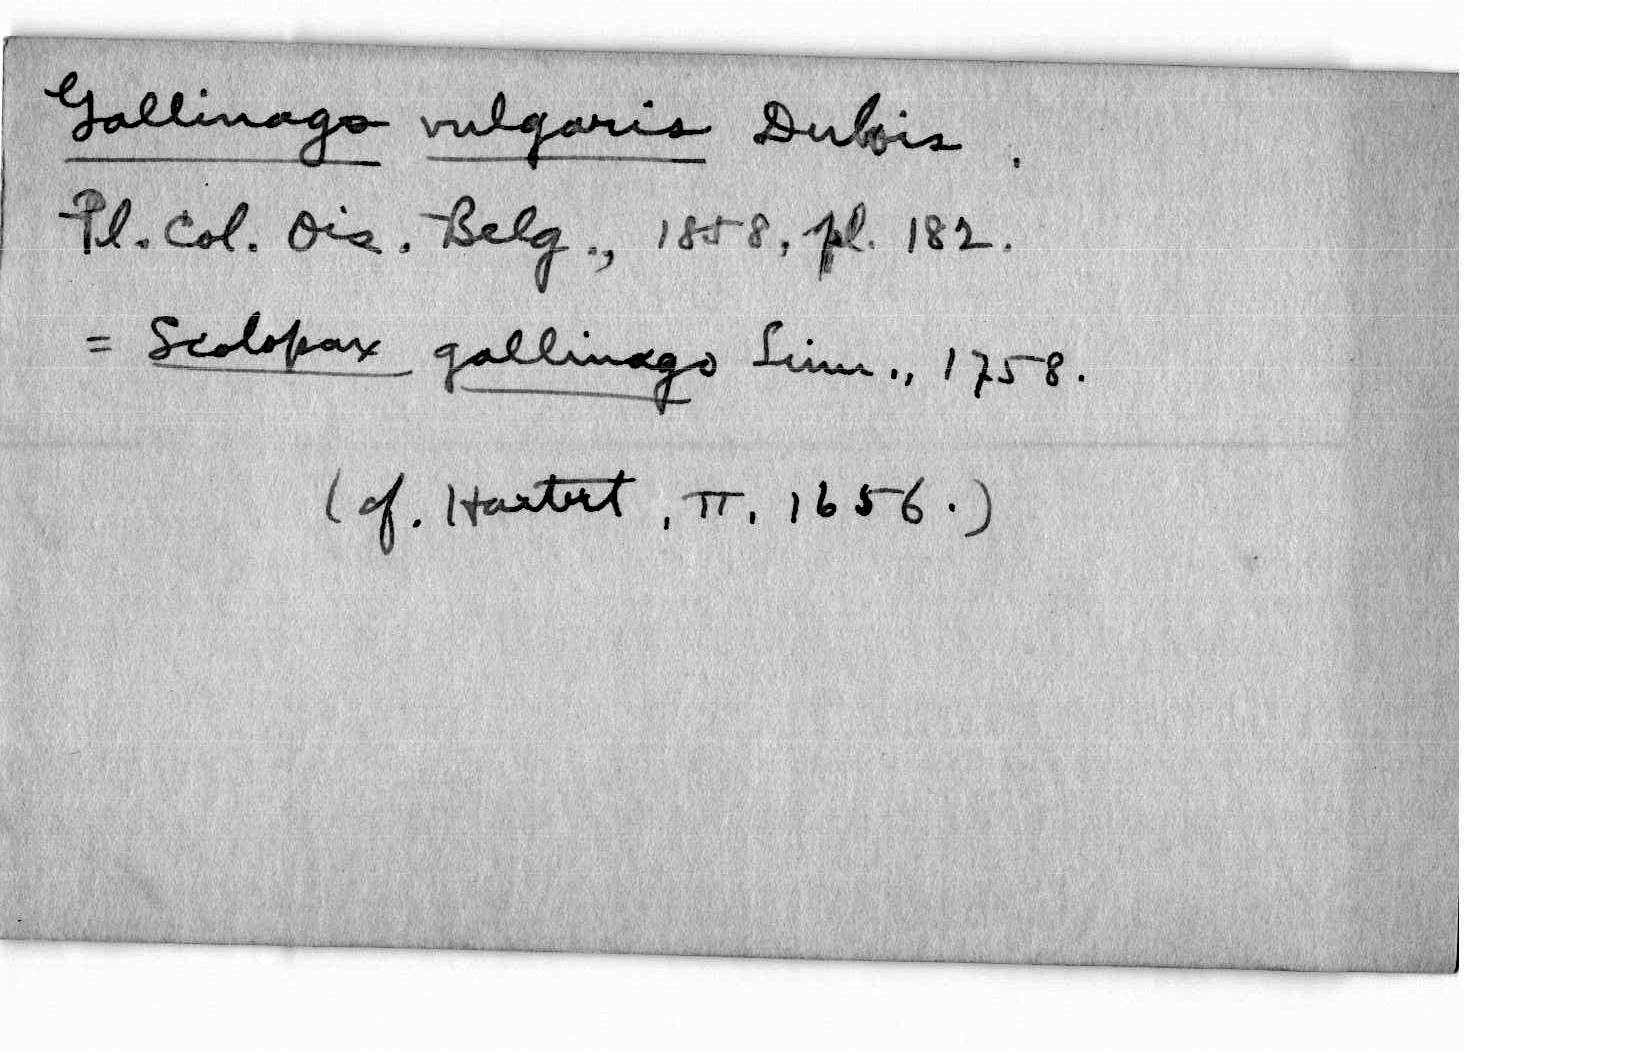 Gallinago vulgaris Dubois.
Pl. Col. Ois. Belg., 1858, pl. 182.
= Scolopax gallinago Linn., 1758.
(cf. Hartert, II, 1656.)